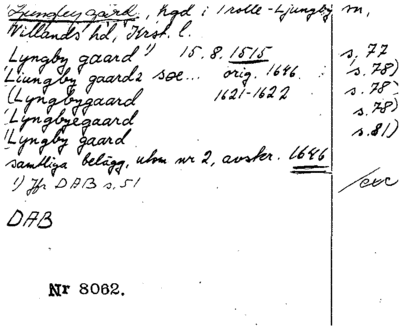 Ljungby gård, Kgd i Trolle-Ljungby sn,
Villands hd, Krst. l.
Lyngby gaard 1) 15.8. 1515 s. 77
(Liungby gaardz søe... orig. 1646 s. 78)
(Lyngbygaard 1621-1622 s. 78)
(Lyngbyegaard s. 78)
(Lyngby gaard s. 81)
samtliga belägg, utom nr 2, avskr. 1646
1) Jfr DAB s. 51
DAB
Nr 8062.